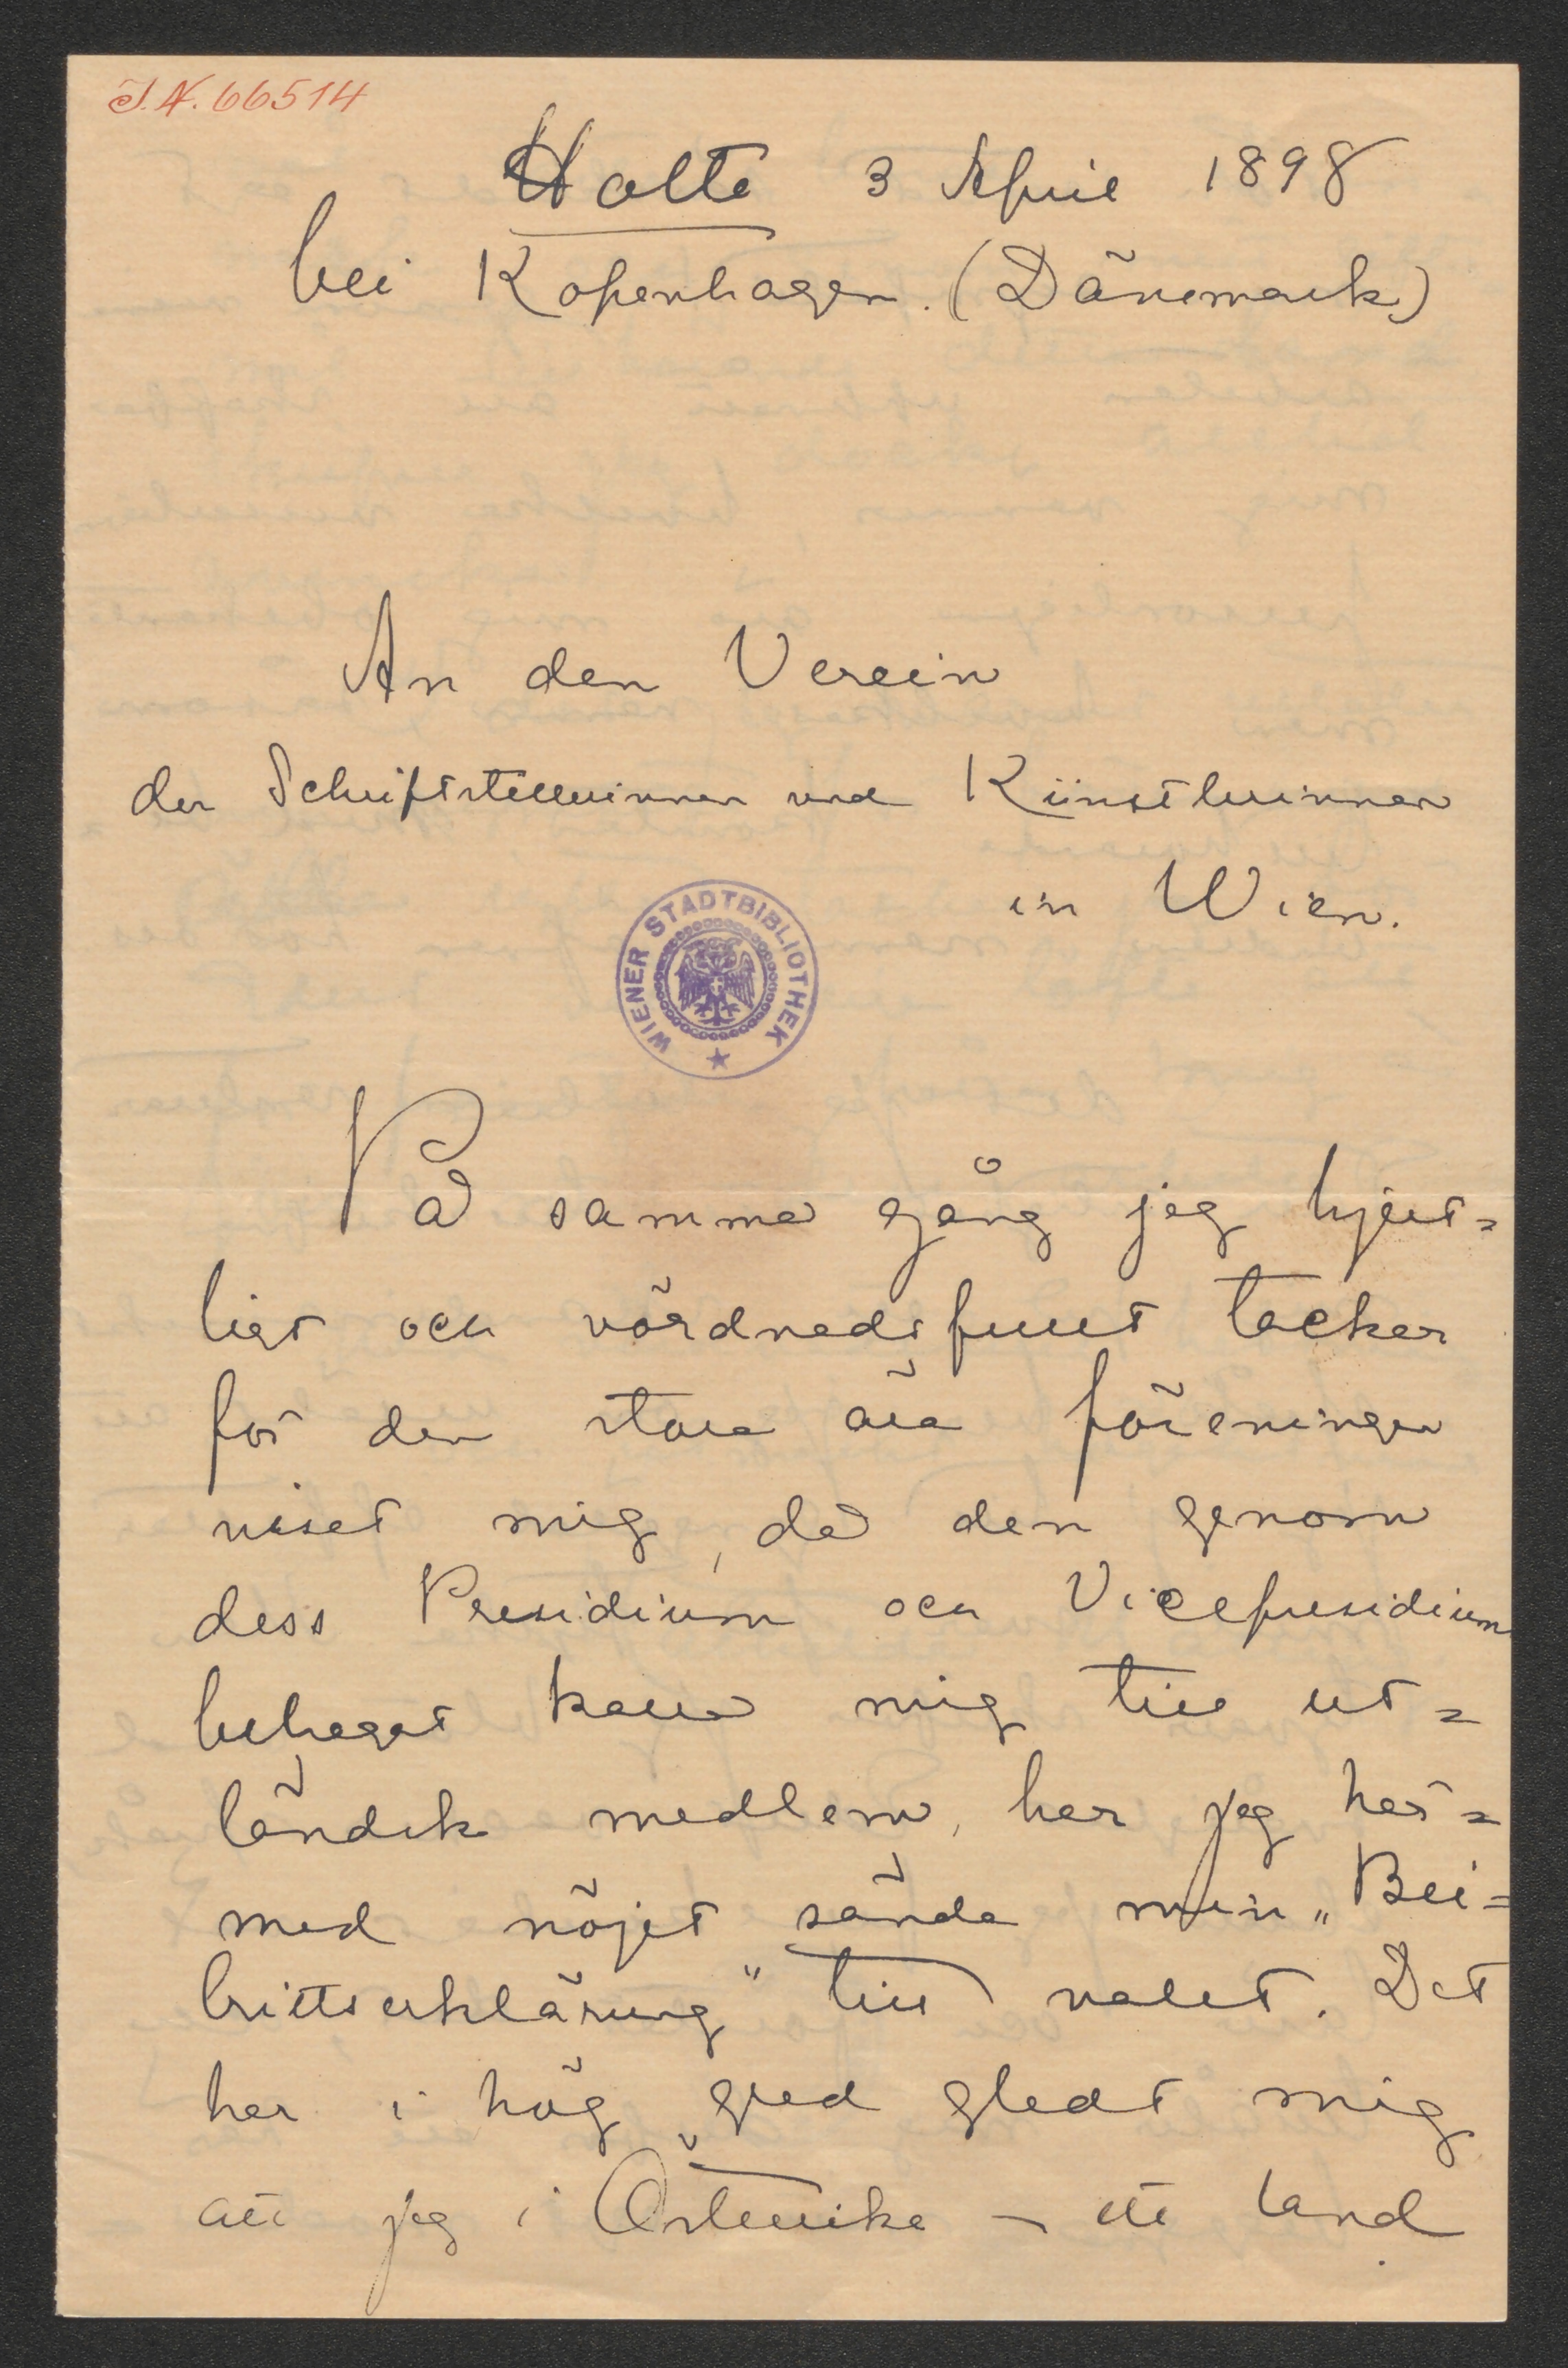 I.N. 66514
Holte 3 April 1898
bei Kopenhagen. (Dänemark)
An den Verein
der Schriftstellerinnen und Künstlerinnen
in Wien.
WIENER STADTBIBLIOTHEK
På samma gång jag hjert=
ligt och vördnadsfullt tackar
för den stora ära föreningen
visat mig, då den genom
dess Presidium och Vicepresidium
behagat kalla mig till ut=
ländsk medlem, har jag här=
med nöjet sända min „Bei=
trittserklärung" till valet. Det
har i hög grad gladt mig
att jag i Österrike – ett land